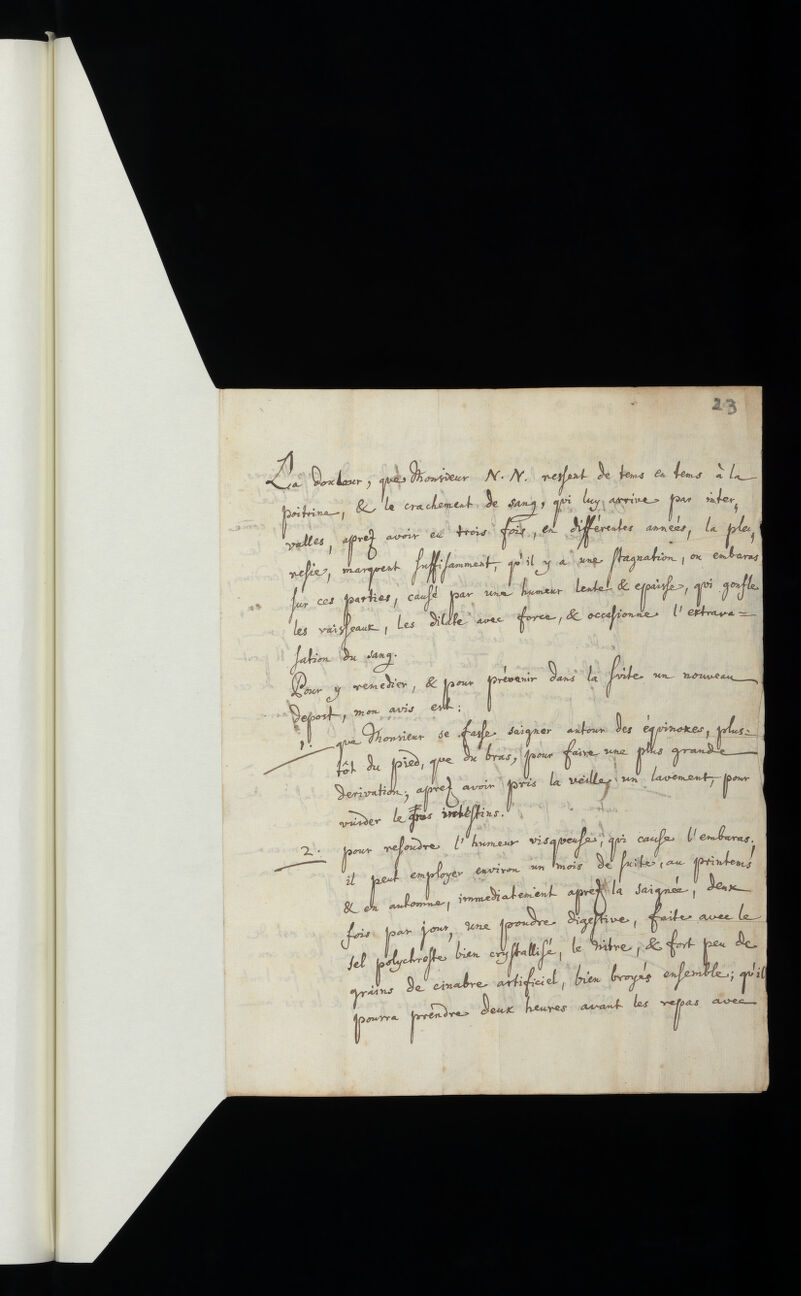 23
La douleur, que Monsieur N. N. ressent de tems en tems à la
poitrine, & le crachement de sang, qui luy arrive par inter,
valles, aprez avoir eu trois fois, en différentes années, la pleu,
resie, marquent suffisamment, qu'il y a une stagnation, ou embaras
sur ces parties, causé par une humeur lente & epaisse, qui gonfle
les vaisseaux, les dilate avec force, & occasionne l'extrava=
sation du sang.
Pour y remedier, & pour prévenir dans la suite un nouveau
depost, mon avis est:
1. que Monsieur se fasse saigner autour des équinoxes, plus=
tôt du pied, que du bras, pour faire une plus grande
derivation; aprez avoir pris la veille un lavement, pour
vuider le gros intestins.
2. pour resoudre l'humeur visqueuse, qui cause l'embaras,
il peut employer environ un mois de suite, au printems
& en automne, immediatement aprez la saignée, deux
fois par jour, une poudre digestive, faite avec le
sel polychreste bien crystallisé, le nitre, & fort peu de
grains de cinabre artificiel, bien broyés ensemble; qu'il
pourra prendre deux heures avant les repas avec